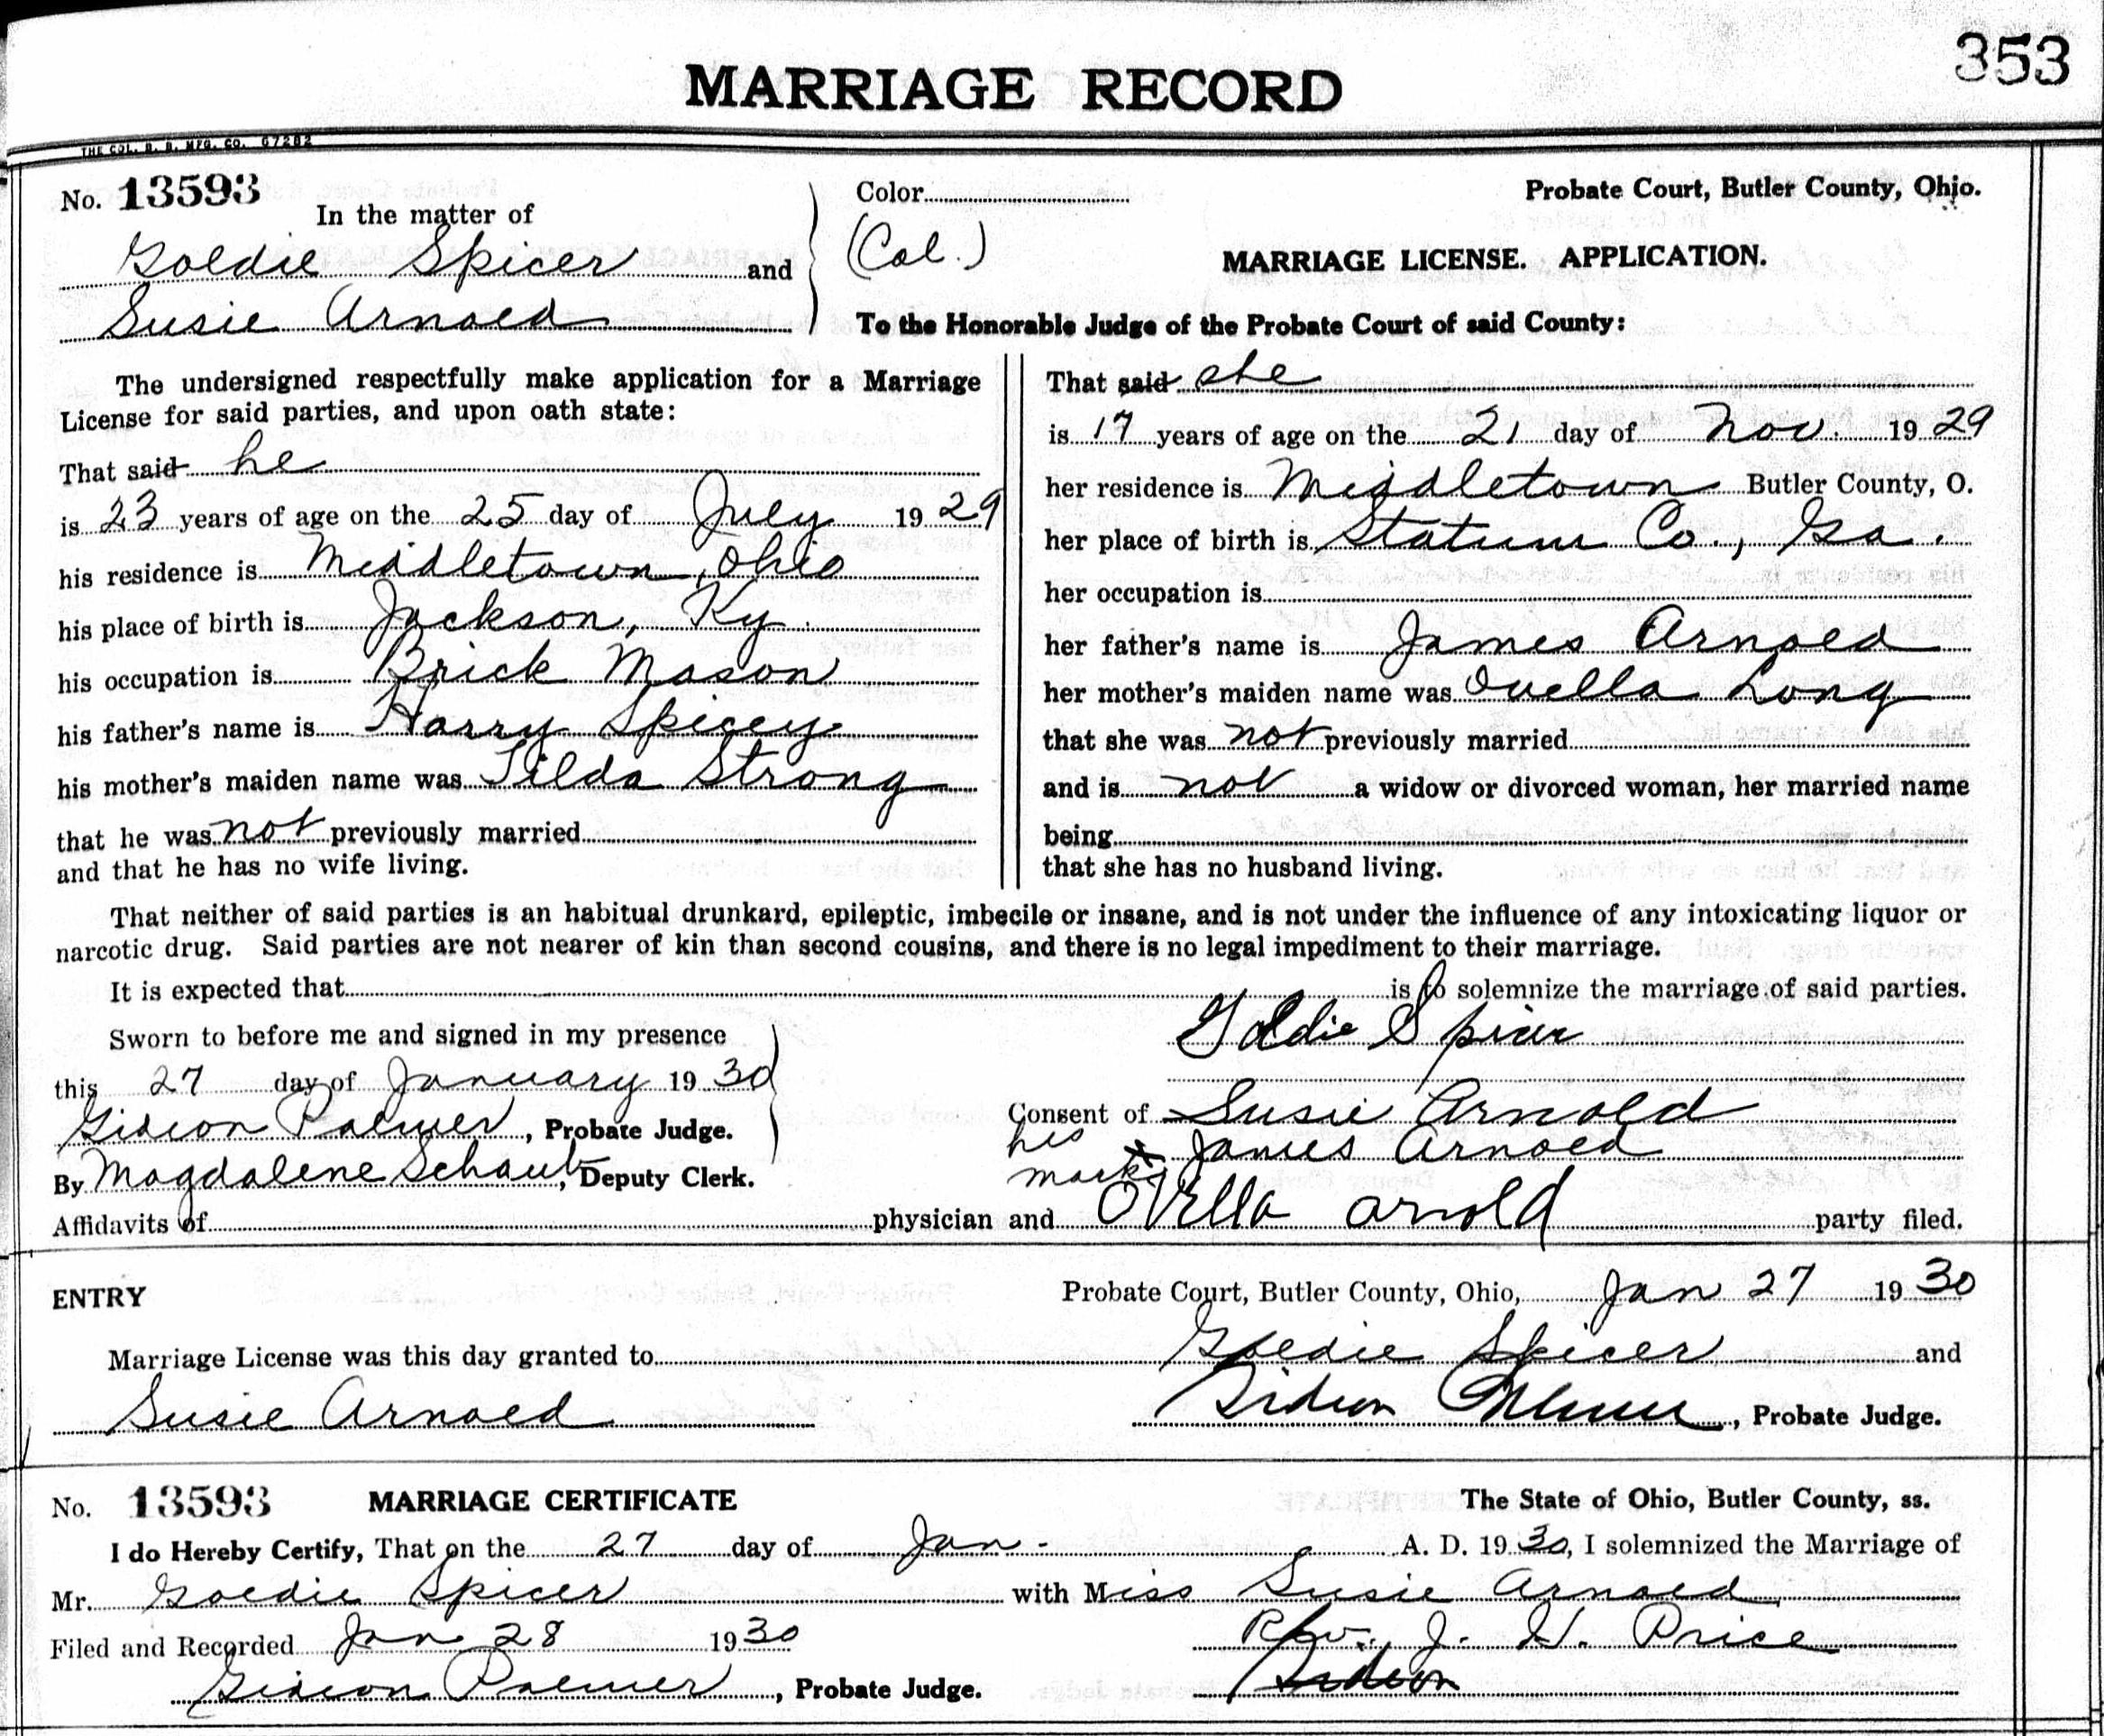 353
MARRIAGE RECORD
THE COL. B. B. MFG. CO. 67282
No. 13593
In the matter of
Goldie Spicer and
Susie Arnold
Color
(Col.)
Probate Court, Butler County, Ohio.
MARRIAGE LICENSE. APPLICATION.
To the Honorable Judge of the Probate Court of said County:
The undersigned respectfully make application for a Marriage
License for said parties, and upon oath state:
That said he
is 23 years of age on the 25 day of July 1929
his residence is Middletown, Ohio
his place of birth is Jackson, Ky.
his occupation is Brick Mason
his father's name is Harry Spicey
his mother's maiden name was Tilda Strong
that he was not previously married
and that he has no wife living.
That said she
is 17 years of age on the 21 day of Nov. 1929
her residence is Middletown Butler County, O.
her place of birth is Statum Co., Ga.
her occupation is
her father's name is James Arnold
her mother's maiden name was Ouella Long
that she was not previously married
and is not a widow or divorced woman, her married name
being
that she has no husband living.
That neither of said parties is an habitual drunkard, epileptic, imbecile or insane, and is not under the influence of any intoxicating liquor or
narcotic drug. Said parties are not nearer of kin than second cousins, and there is no legal impediment to their marriage.
It is expected that is to solemnize the marriage of said parties.
Sworn to before me and signed in my presence
this 27 day of January 1930
Gideon Palmer, Probate Judge.
By Magdalene Schaub, Deputy Clerk.
Goldie Spicer
Susie Arnold
Consent of
his x James Arnold
mark
Affidavits of physician and Ovella Arnold party filed.
ENTRY
Probate Court, Butler County, Ohio, Jan 27 1930
Marriage License was this day granted to Goldie Spicer and
Susie Arnold Gideon Palmer, Probate Judge.
No. 13593 MARRIAGE CERTIFICATE The State of Ohio, Butler County, ss.
I do Hereby Certify, That on the 27 day of Jan. A. D. 1930, I solemnized the Marriage of
Mr. Goldie Spicer with Miss Susie Arnold
Filed and Recorded Jan 28 1930 Rev. J. H. Price
Gideon Palmer, Probate Judge. Gideon